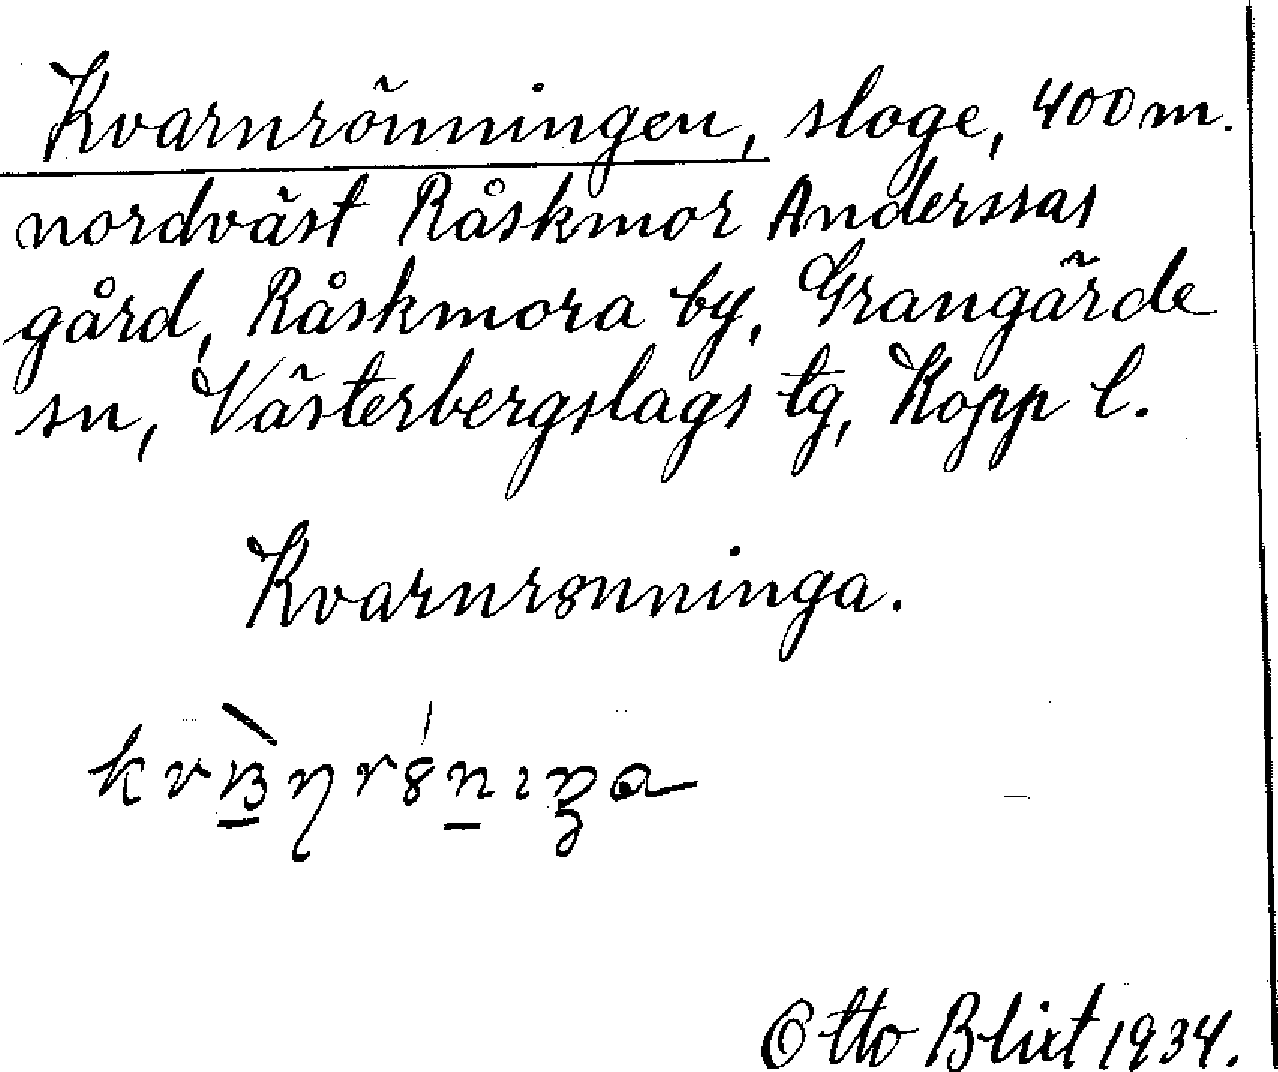 Kvarnrönningen, sloge, 400 m.
nordväst Råskmor Anderssas
gård, Råskmora by, Grangärde
sn, Västerbergslags tg, Kopp l.
Kvarnrönninga.
Otto Blixt 1934.